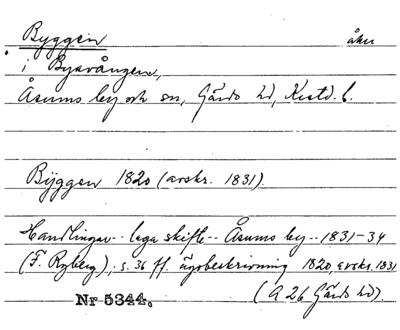 Byggen åker
i Byavången,
Åsums by och sn, Gärds hd, Kristd. l.
Byggen 1820 (avskr. 1831).
Handlingar -- laga skifte -- Åsums by -- 1831-34
(F. Ryberg), s. 36 ff. ägobeskrivning 1820, avskr. 1831
Nr 5344. (A 26 Gärds hd).